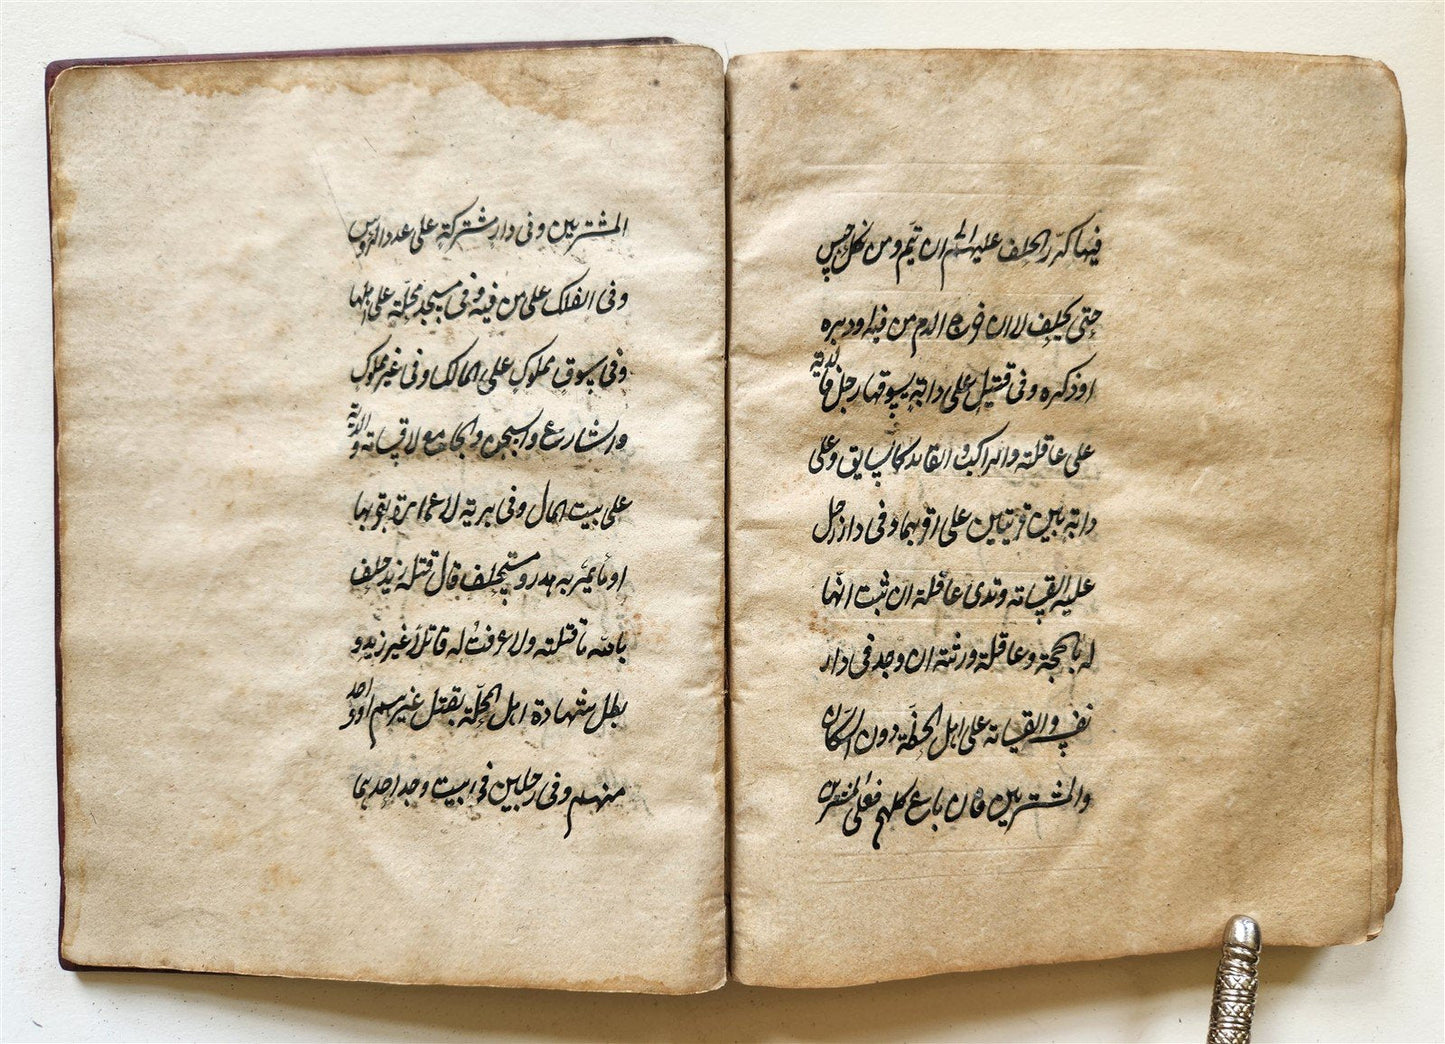 فيها كرر الحلف عليهم الى ان تتم ومن نكل حبس
حتى يحلف لا ان خرج الدم من فمه او دبره
او ذكره وفى قتيل على دابة يسوقها رجل فالدية
على عاقلته والراكب والقائد كالسايق وعلى
دابة بين قريتين على اقربهما وفى دار رجل
عليه القسامة وتدى عاقلته ان ثبت انها
له بالحجة وعاقلة ورثته ان وجد فى دار
نفسه والقسامة على اهل الخطة دون السكان
والمشترين فان باع كلهم فعلى المشترين
المشترين وفى دار مشتركة على عدد الرؤس
وفى الفلك على من فيه وفى مسجد محلة على اهلها
وفى سوق مملوك على المالك وفى غير مملوك
والشارع والسجن والجامع لا قسامة والدية
على بيت المال وفى برية لا عمارة بقربها
او ماء يمر به هدر ومستحلف قال قتله زيد حلف
بالله ما قتلته ولا عرفت له قاتلا غير زيد و
بطل شهادة اهل المحلة بقتل غيرهم او واحد
منهم وفى رجلين فى بيت وجد احدهما